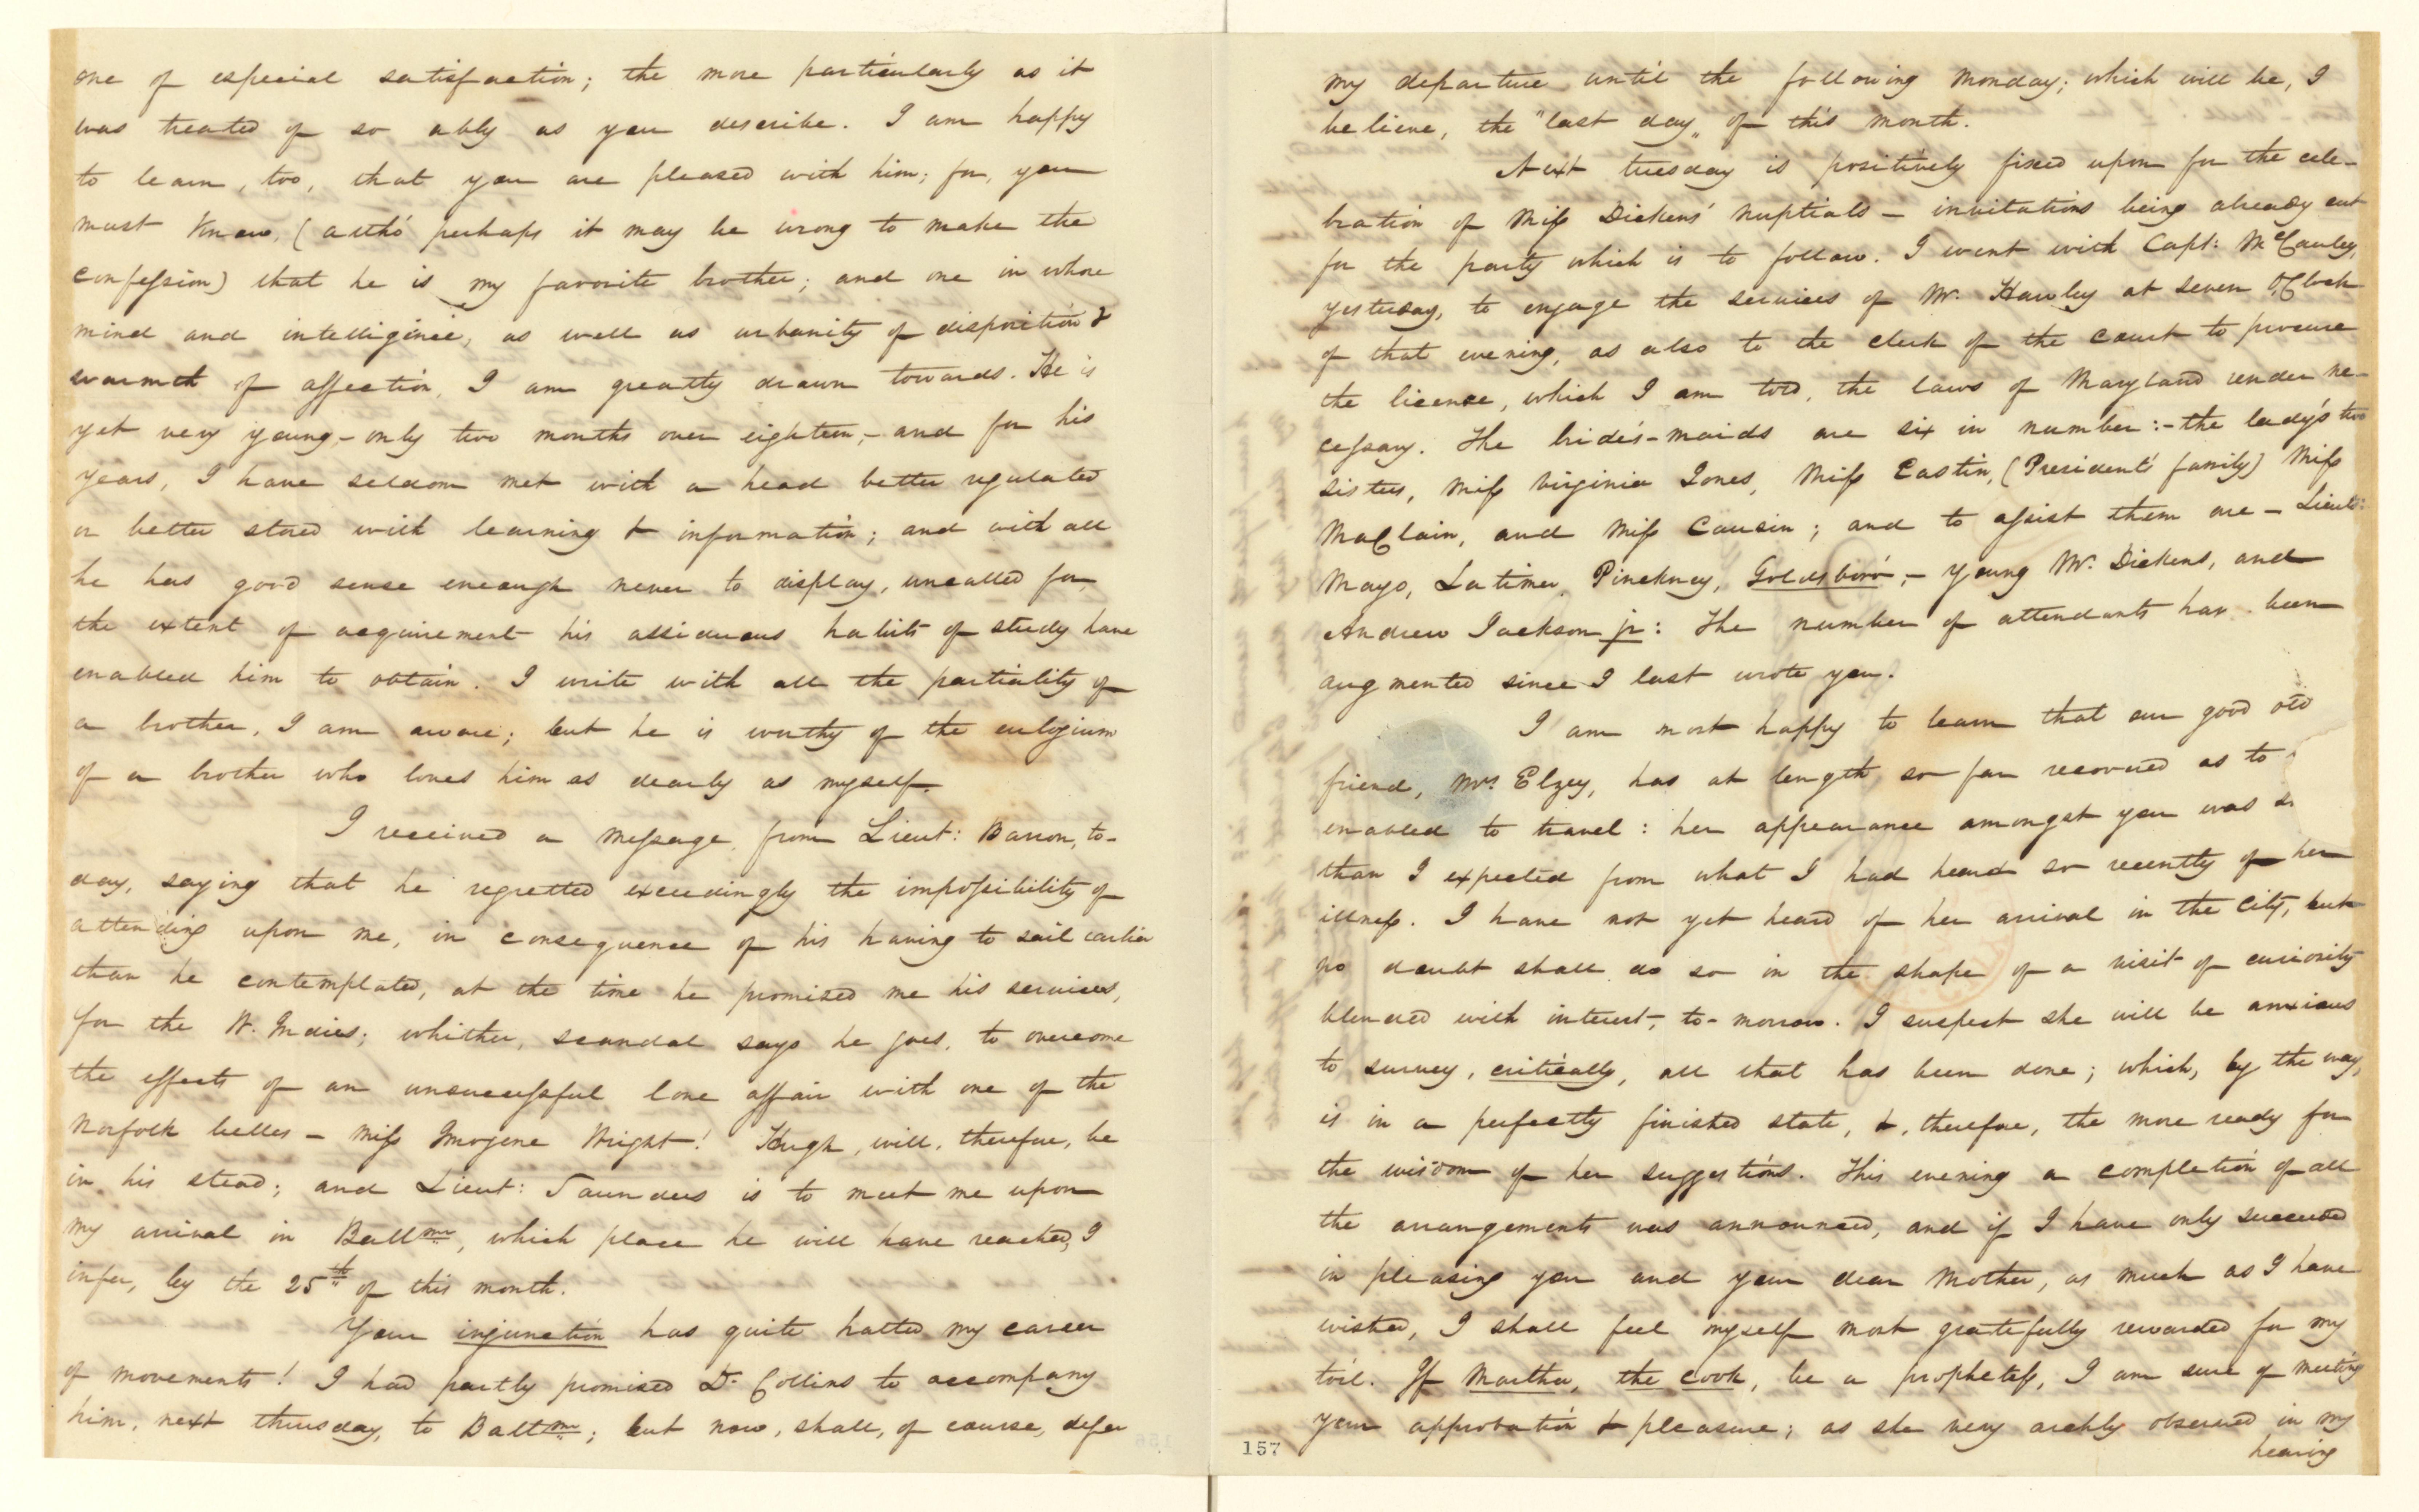 one of especial satisfaction; the more particularly as it
was treated of so ably as you describe. I am happy
to learn, too, that you are pleased with him; for, you
must know, (altho' perhaps it may be wrong to make the
confession) that he is my favorite brother; and one in whose
mind and intelligence, as well as urbanity of disposition &
warmth of affection, I am greatly drawn towards. He is
yet very young – only two months over eighteen, – and for his
years, I have seldom met with a head better regulated
or better stored with learning & information; and with all
he has good sense enough never to display, uncalled for,
the extent of acquirement his assiduous habits of study have
enabled him to obtain. I write with all the partiality of
a brother, I am aware; but he is worthy of the eulogium
of a brother who loves him as dearly as myself.
I received a message, from Lieut: Barron, to-
day, saying that he regretted exceedingly the impossibility of
attending upon me, in consequence of his having to sail earlier
than he contemplated, at the time he promised me his services,
for the W. Indies; whither, scandal says he goes, to overcome
the effects of an unsuccessful love affair with one of the
Norfolk belles – Miss Imogene Wright! Hugh, will, therefore, be
in his stead; and Lieut: Saunders is to meet me upon
my arrival in Balt:me, which place he will have reached, I
infer, by the 25th of this month.
Your injunction has quite halted my career
of movements! I had partly promised Dr. Collins to accompany
him, next thursday, to Balt:me; but now, shall, of course, defer
my departure until the following monday; which will be, I
believe, the "last day" of this month.
Next tuesday is positively fixed upon for the cele-
bration of Miss Dickens' nuptials – invitations being already out
for the party which is to follow. I went with Capt: McCauley,
yesterday, to engage the services of Mr. Hawley at seven O,Clock
of that evening, as also to the clerk of the court to procure
the license, which I am told, the laws of Maryland render ne-
cessary. The bride's-maids are six in number: – the lady's two
sisters, Miss Virginia Jones, Miss Eastin, (President's family) Miss
MaClain, and Miss Causin; and to assist them are – Lieuts:
Mayo, Latimer, Pinckney, Goldsboro', – young Mr. Dickens, and
Andrew Jackson jr: The number of attendants has been
augmented since I last wrote you.
I am most happy to learn that our good old
friend, Mrs. Elzey, has at length so far recovered as to
enabled to travel: her appearance amongst you was
than I expected from what I had heard so recently of her
illness. I have not yet heard of her arrival in the City, but
no doubt shall do so in the shape of a visit of curiosity
blended with interest, to-morrow. I suspect she will be anxious
to survey, critically, all that has been done; which, by the way,
is in a perfectly finished state, &, therefore, the more ready for
the wisdom of her suggestions. This evening a completion of all
the arrangements was announced, and if I have only succeeded
in pleasing you and your dear Mother, as much as I have
wished, I shall feel myself most gratefully rewarded for my
toil. If Martha, the cook, be a prophetess, I am sure of meeting
your approbation & pleasure; as she very archly observed in my
hearing
157